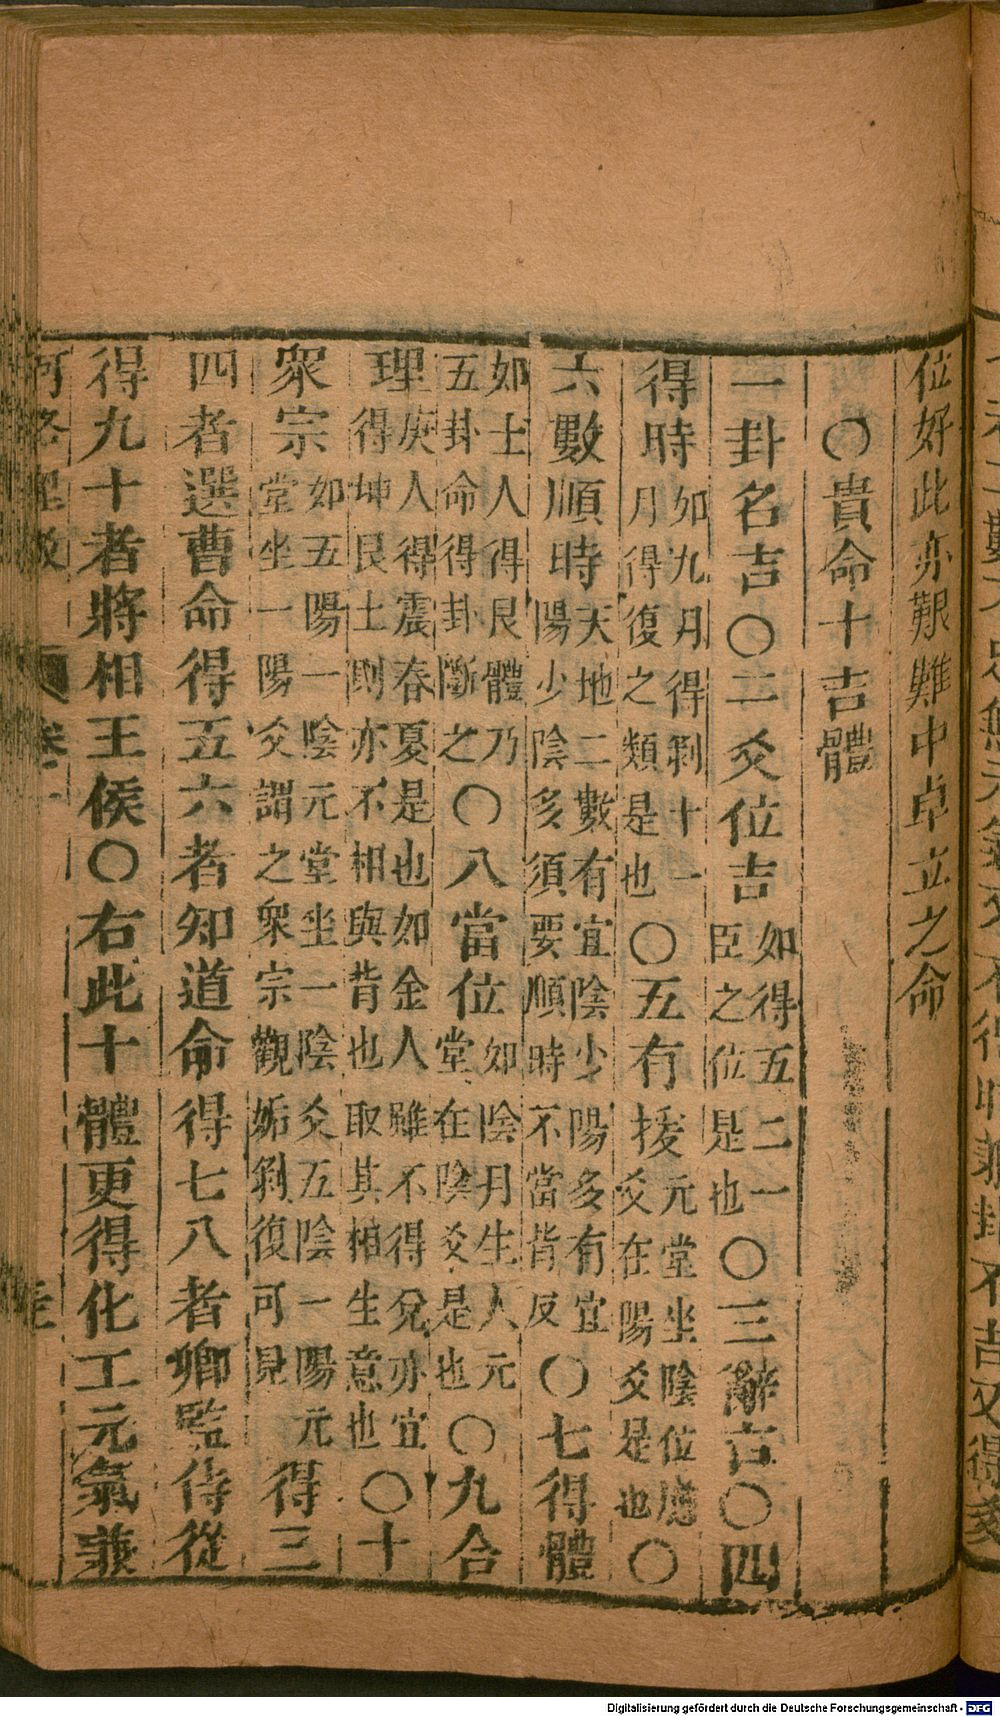 位好此亦艱難中卓立之命
〇貴命十吉體
一卦名吉〇二爻位吉如得五二一臣之位是也〇三辭吉〇四
得時如九月得剥十一月得復之類是也〇五有援元堂坐陰位應爻在陽爻是也〇
六數順時天地二數有宜陰少陽多有宜陽少陰多須要順時不當皆反〇七得體
如士人得艮體乃五卦命得卦斷之〇八當位如陰月生人元堂在陰爻是也〇九合
理庚人得震春夏是也如金人雖不得兌亦宜得坤艮土則亦不相與背也取其相生意也〇十
衆宗如五陽一陰元堂坐一陰爻五陰一陽元堂坐一陽爻謂之衆宗觀姤剥復可見得三
四者選曹命得五六者知道命得七八者卿監侍從
得九十者將相王侯〇右此十體更得化工元氣兼
河洛理數
Digitalisierung gefördert durch die Deutsche Forschungsgemeinschaft - DFG